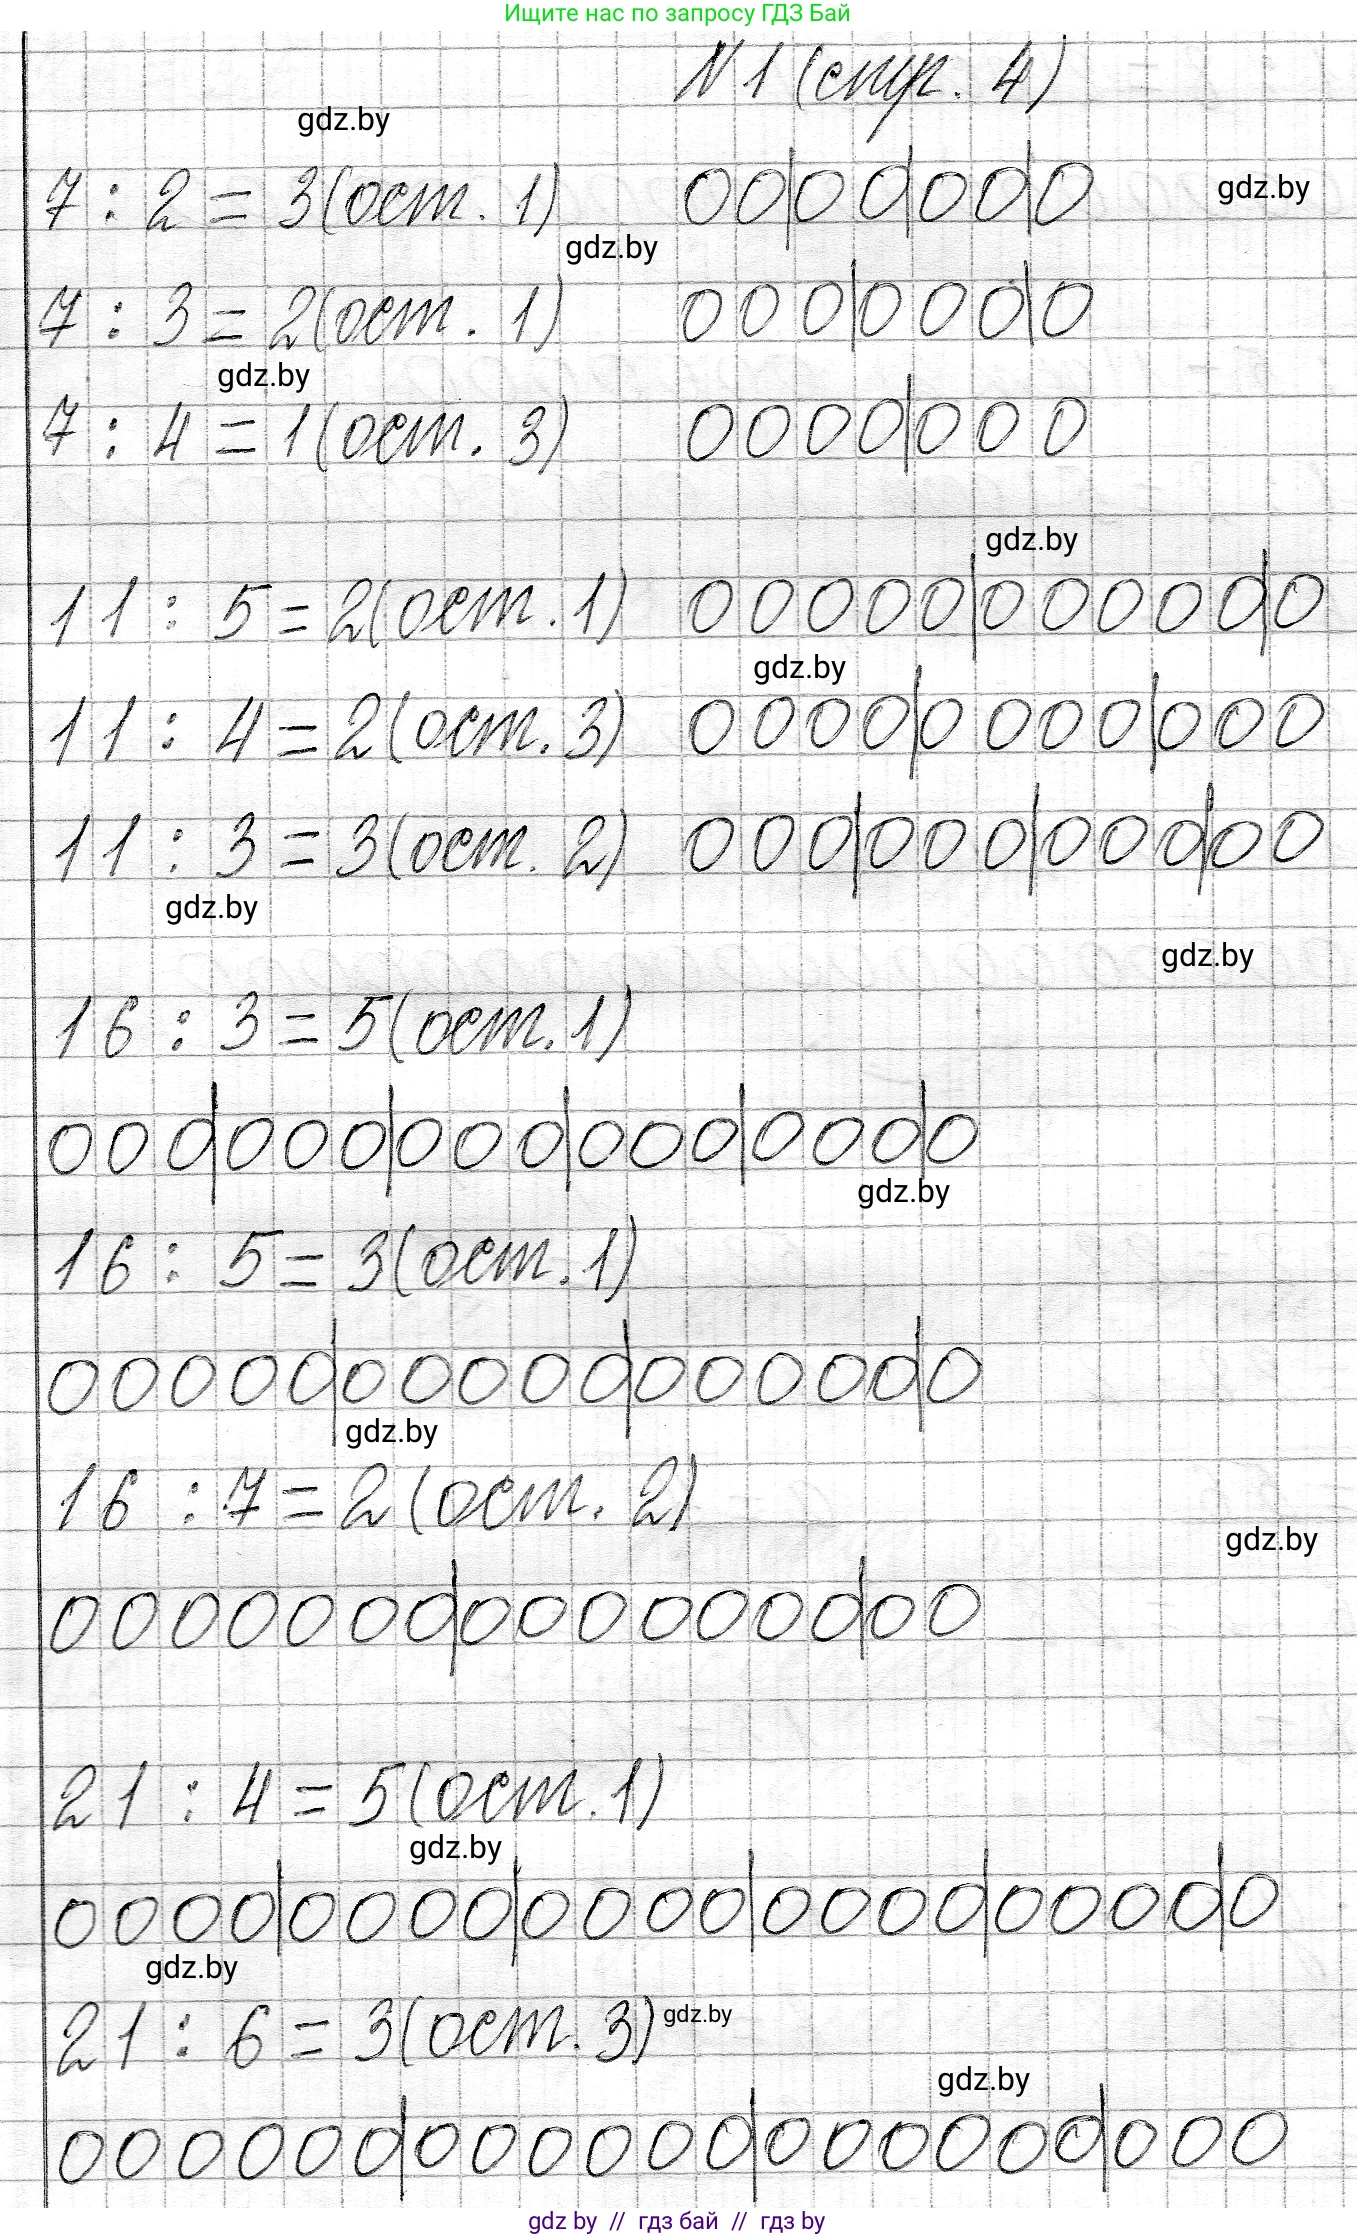 Ищите нас по запросу ГДЗ Бай
N 1 (стр. 4)
gdz.by
7 : 2 = 3(ост. 1) 00|00|00|0
gdz.by
gdz.by
7 : 3 = 2(ост. 1) 000|000|0
gdz.by
7 : 4 = 1(ост. 3) 0000|000
gdz.by
11 : 5 = 2(ост. 1) 00000|00000|0
gdz.by
11 : 4 = 2(ост. 3) 0000|0000|000
11 : 3 = 3(ост. 2) 000|000|000|00
gdz.by
gdz.by
16 : 3 = 5(ост. 1)
000|000|000|000|000|0
gdz.by
16 : 5 = 3(ост. 1)
00000|00000|00000|0
gdz.by
16 : 7 = 2(ост. 2)
gdz.by
0000000|0000000|00
21 : 4 = 5(ост. 1)
gdz.by
0000|0000|0000|0000|0000|0
gdz.by
21 : 6 = 3(ост. 3) gdz.by
gdz.by
000000|000000|000000|000
gdz by // гдз бай // гдз by